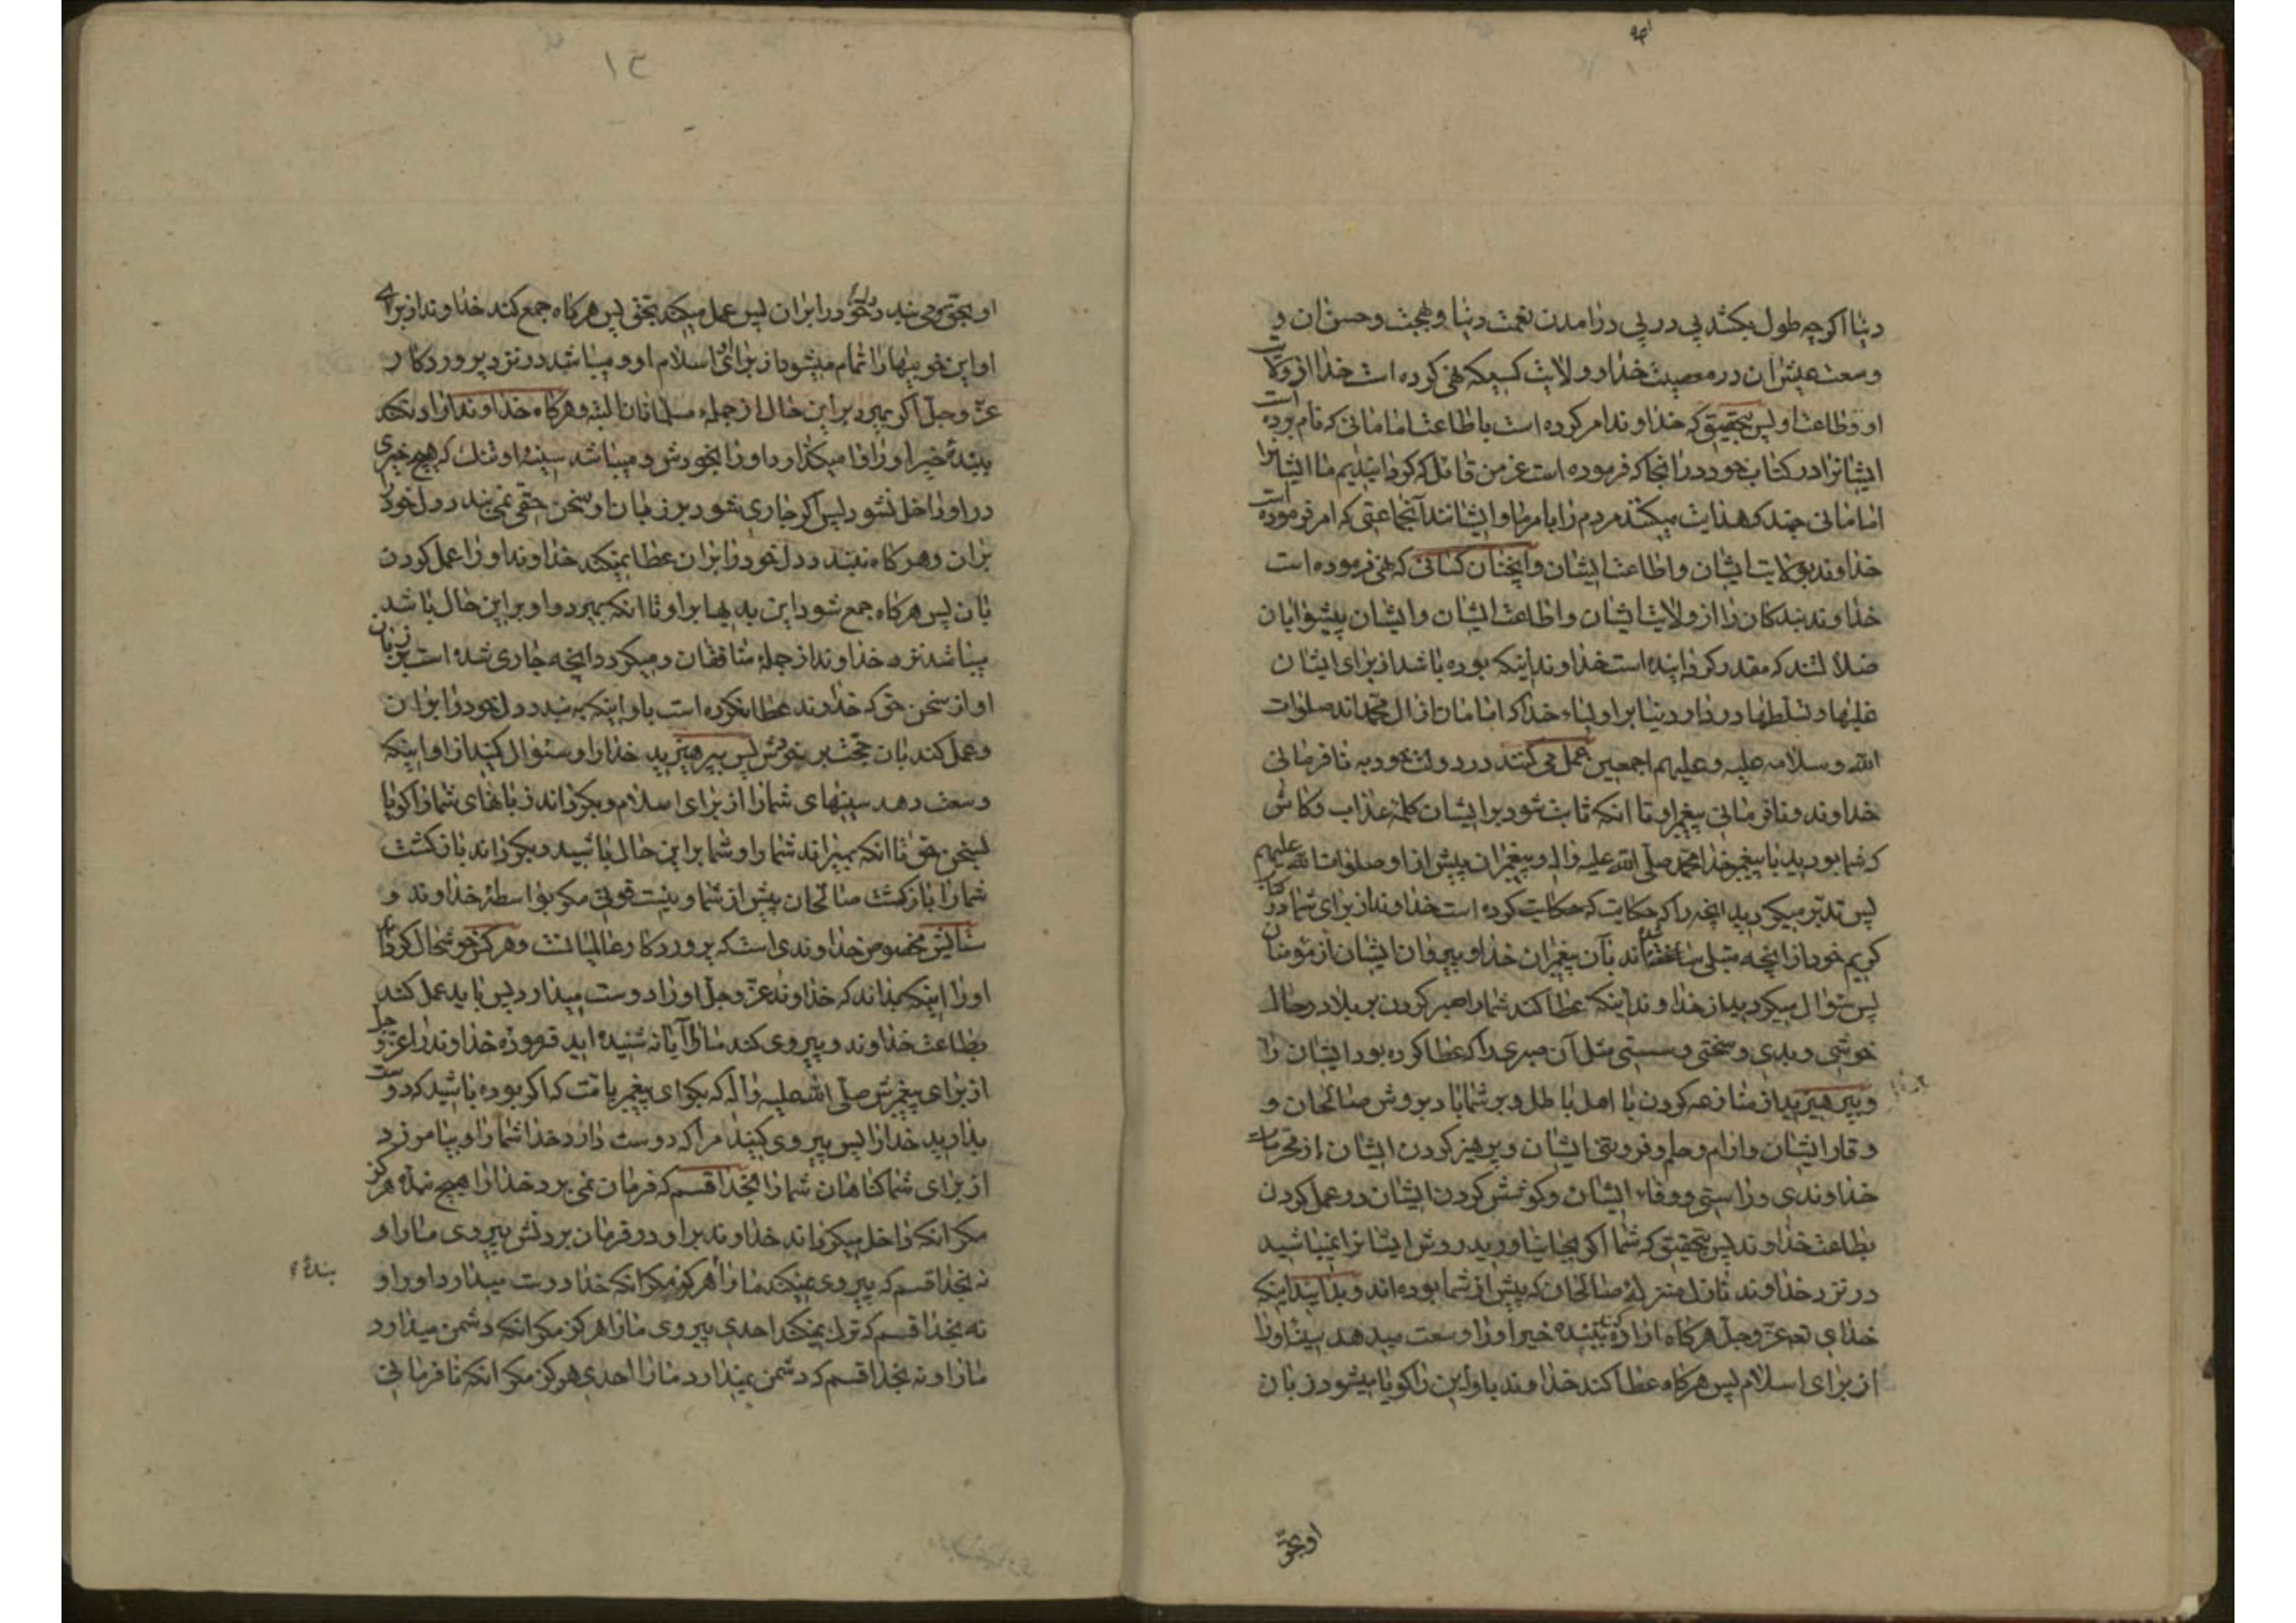 دنیا اکرچه طول بکشد پی در پی درامدن نعمت دنیا و بهجت و حسن ان و
وسعت عیش ان در معصیت خدا و ولایت کسیکه نهی کرده است خدا از ولایت
او و طاعت او پس بتحقیق که خداوند امر کرده است باطاعت امامانی که نام بوده است
ایشانرا در کتاب خود در انجا که فرموده است عز من قائل که کردانیدیم ما ایشانرا
امامانی چند که هدایت میکنند مردم را بامر ما و ایشانند آنجماعتی که امر فرموده است
خداوند بولایت ایشان و اطاعت ایشان و انچنان کسانی که نهی فرموده است
خداوند بندکان را از ولایت ایشان و اطاعت ایشان و ایشان پیشوایان
ضلالتند که مقدر کردانیده است خداوند اینکه بوده باشد از برای ایشان
غلبها و تسلطها در دار دنیا بر اولیاء خدا که امامان از ال محمداند صلوات
الله و سلامه علیه و علیهم اجمعین عمل می کنند در دولت خود به نافرمانی
خداوند و نافرمانی پیغمبر او تا انکه ثابت شود بر ایشان کلمه عذاب و کاش
که شما بودید با پیغمبر خدا محمد صلی الله علیه و اله و پیغمبران پیش از او صلوات الله علیهم
پس تدبر میکردید انچه را که حکایت کرده است خداوند از برای شما در کتاب
کریم خود از انچه مبتلی ساخته‌اند بآن پیغمبران خدا و پیروان ایشان از مؤمنان
پس سئوال میکردید از خداوند اینکه عطا کند شما را صبر کردن بر بلا در حال
خوشی و بدی و سختی و سستی مثل آن صبری را که عطا کرده بود ایشان را
و بپرهیزید از منازعه کردن با اهل باطل و بر شما باد بروش صالحان و
وقار ایشان و ارام و حلم و فروتنی ایشان و پرهیز کردن ایشان از محرمات
خداوندی و راستی و وفاء ایشان و کوشش کردن ایشان در عمل کردن
بطاعت خداوند پس بتحقیق که شما اکر بجا نیاورید روش ایشانرا نمیباشید
در نزد خداوند نازل منزلهٔ صالحان که پیش از شما بوده‌اند و بدانید اینکه
خدای تعه عز و جل هرکاه اراده کند ببنده خیر او را وسعت میدهد سینهٔ او را
از برای اسلام پس هرکاه عطا کند خداوند باو این را کویا میشود زبان
او بحق
او بحق و می بندد دل او در ابران پس عمل میکند بحق پس هرکاه جمع کند خداوند از برای
او این خوبیها را تمام میشود از برای او اسلام او و میباشد در نزد پروردکار
عز و جل اکر بمیرد بر این حال از جمله مسلمانان البته و هرکاه خداوند اراده نکند
ببندهٔ خیر او را وا میکذارد او را بخودش و میباشد سینهٔ او تنک که هیچ خیری
در او داخل نشود پس اکر جاری شود بر زبان او سخن حقی نمی بندد دل خود را
بران و هرکاه نبندد دل خود را بران عطا نمیکند خداوند او را عمل کردن
بان پس هرکاه جمع شود این بدیها بر او تا انکه بمیرد و او بر این حال باشد
میباشد نزد خداوند از جملهٔ منافقان و میکردد انچه جاری شده است بر زبان
او از سخن حق که خداوند عطا نکرده است باو اینکه به بندد دل خود را بران
و عمل کند بان حجت بر خودش پس بپرهیزید خدا را و سئوال کنید از او اینکه
وسعت دهد سینهای شما را از برای اسلام و بکرداند زبانهای شما را کویا
بسخن حق تا انکه بمیراند شما را و شما بر این حال باشید و بکرداند بازکشت
شما را بازکشت صالحان پیش از شما و نیست قوتی مکر بواسطهٔ خداوند و
ستایش مخصوص خداوندی است که پروردکار عالمیانست و هرکس خوشحال کرداند
او را اینکه بداند که خداوند عز و جل او را دوست میدارد پس باید عمل کند
بطاعت خداوند و پیروی کند ما را آیا نه شنیده اید فرموده خداوند را عز و جل
از برای پیغمبرش صلی الله علیه و آله که بکو ای پیغمبر بامت که اکر بوده باشید که دوست
بدارید خدا را پس پیروی کنید مرا که دوست دارد خدا شما را و بیامرزد
از برای شما کناهان شما را بخدا قسم که فرمان نمی برد خدا را هیچ بنده هرکز
مکر انکه داخل میکرداند خداوند بر او در فرمان بردنش پیروی ما را و
نه بخدا قسم که پیروی نمیکند ما را بنده هرکز مکر انکه خدا دوست میدارد او را و
نه بخدا قسم که ترک نمیکند احدی پیروی ما را هرکز مکر انکه دشمن میدارد
ما را و نه بخدا قسم که دشمن نمیدارد ما را احدی هرکز مکر انکه نافرمانی